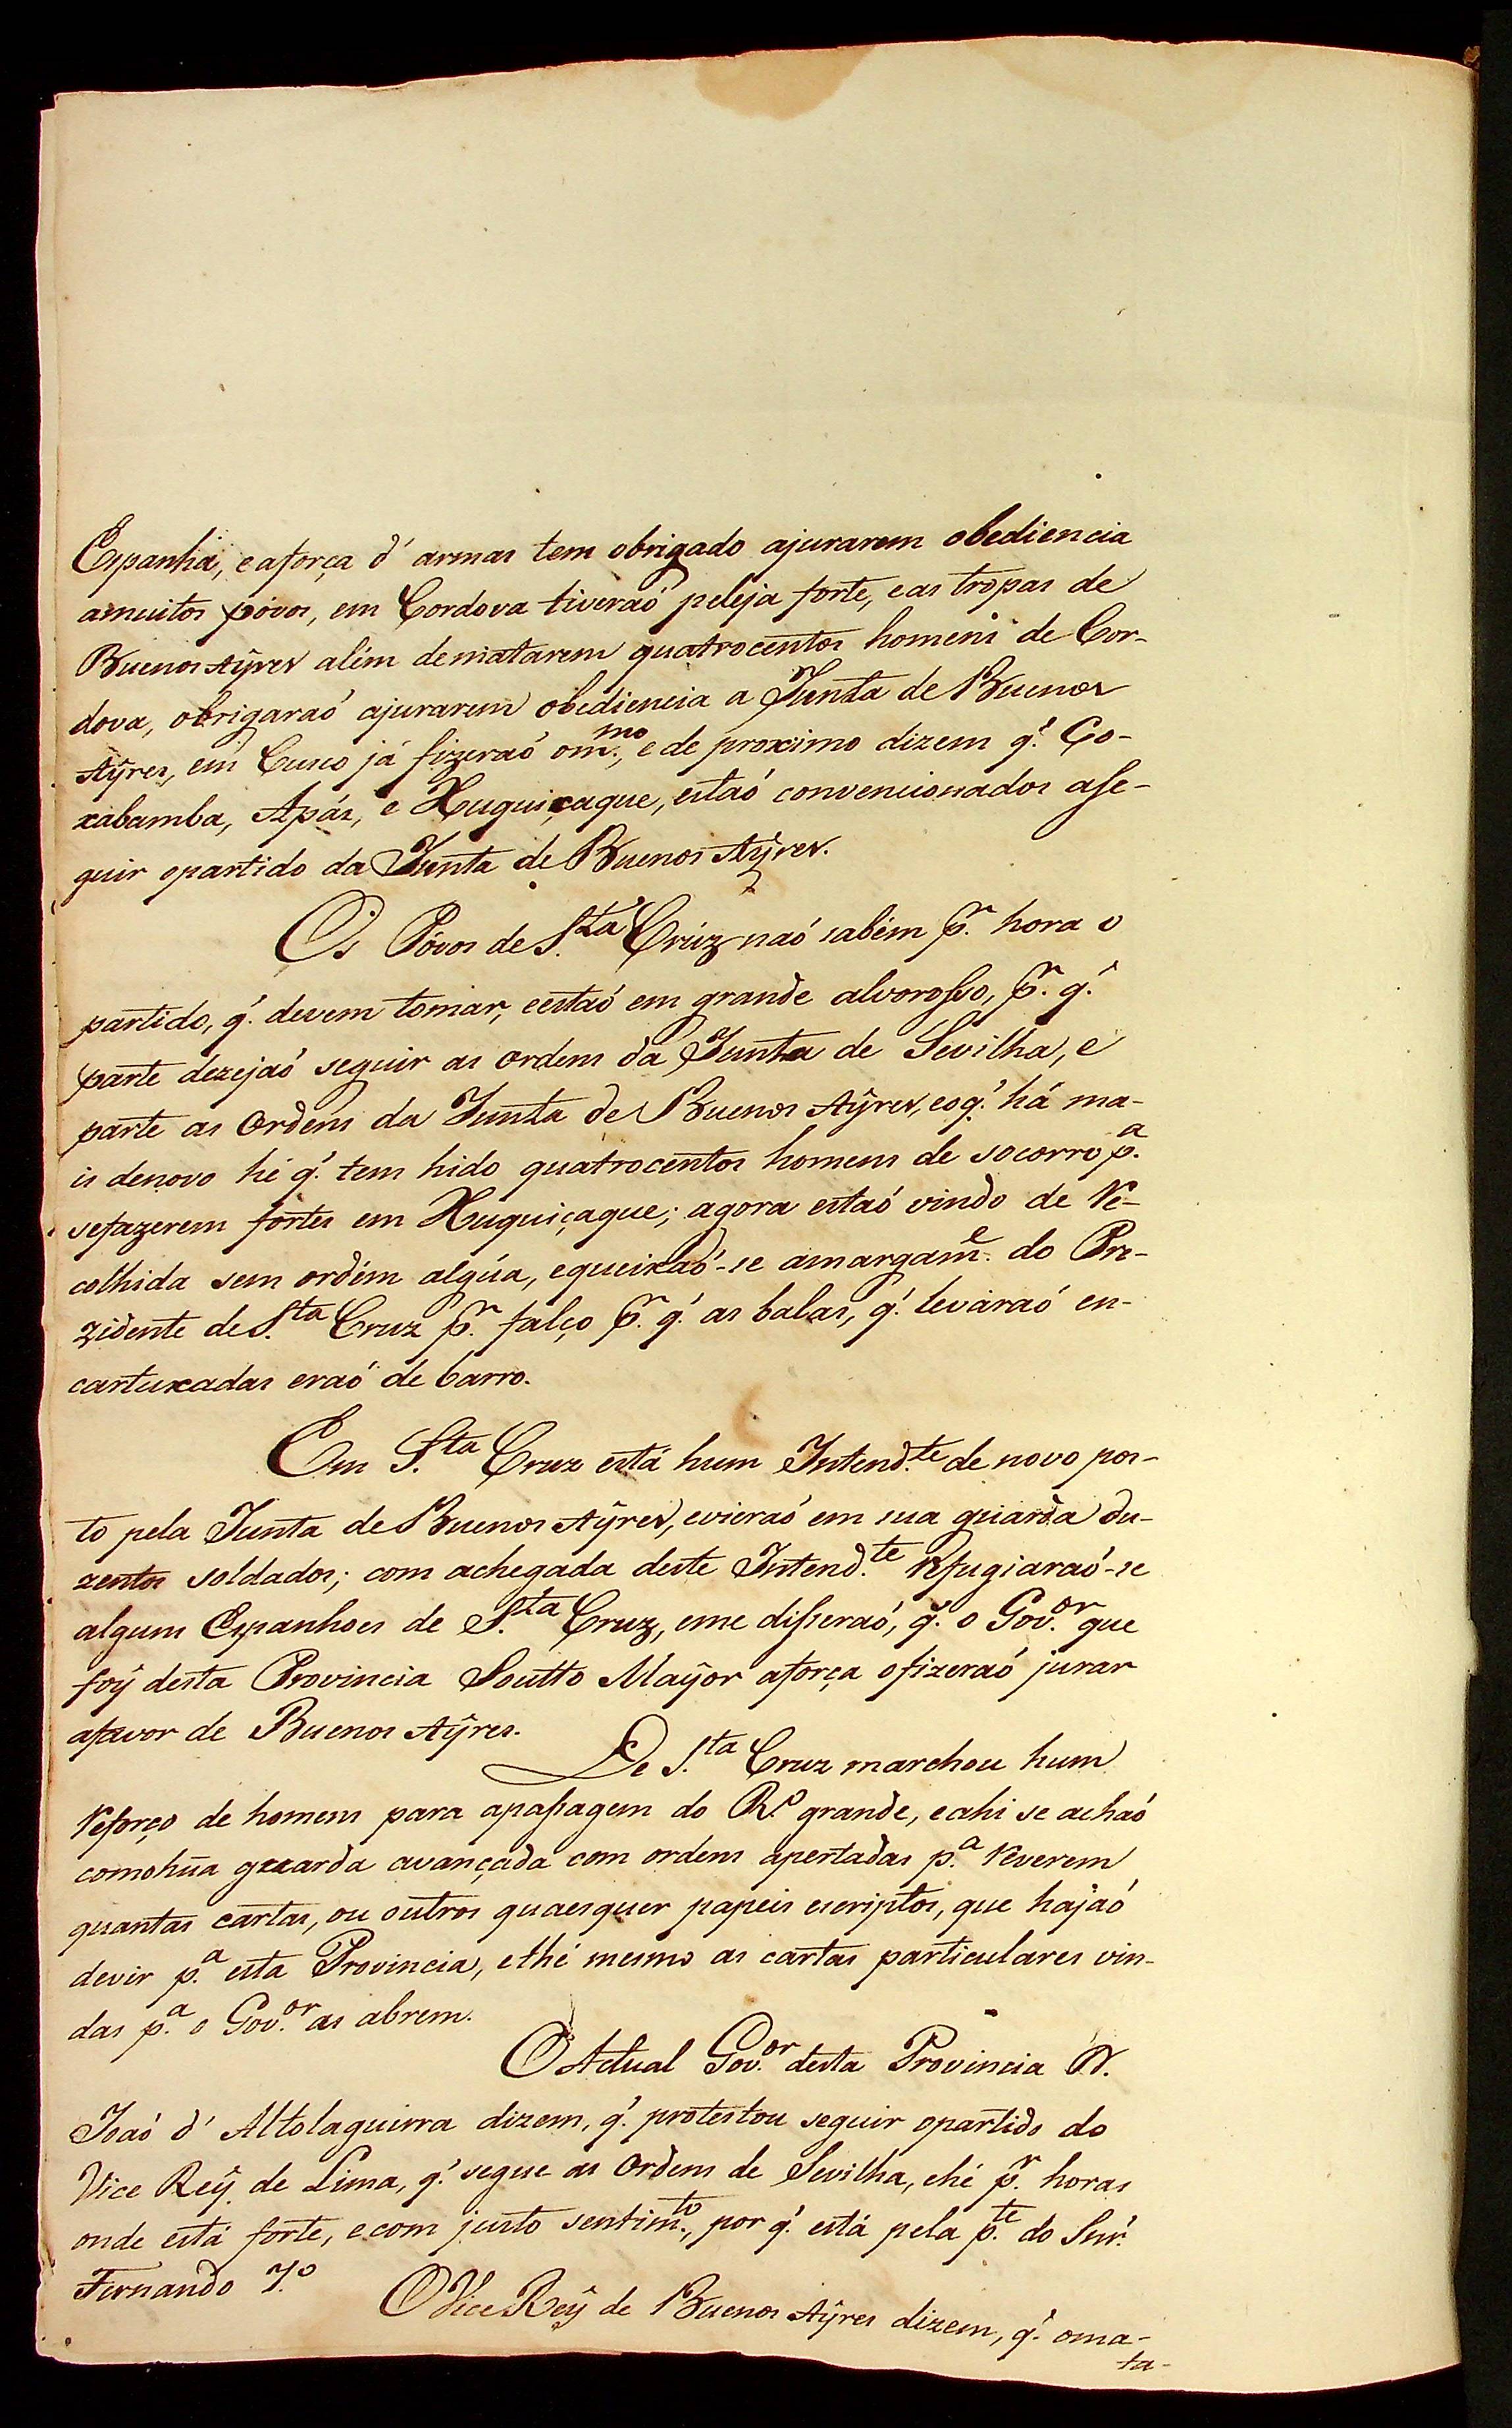 Espanha, eaforça d' armas tem obrigado ajurarem obediencia
amuitos póvos, em Cordova tiveraõ peleja forte, eas tropas de
Buenos Aÿres além dematarem quatrocentos homens de Cor-
dova, obrigaraõ ajurarem obediencia a Junta de Buenos
Aÿres, em Cusco já fizeraõ om.mo, e de proximo dizem q.' Co-
xabamba, Apás, e Xuquiçaque, estaõ convencionados ase-
guir opartido da Junta de Buenos Aÿres.
Os Póvos de S.ta Crúz naõ sabém p.r hora o
partido, q.' devem tomar, eestaõ em grande alvorosso, p.r q.'
parte dezejaõ seguir as ordens da Junta de Sevilha, e
parte as Ordens da Junta de Buenos Aÿres, eoq.' há ma-
is denovo hé q.' tem hido quatrocentos homens de socorro p.a
sefazerem fortes em Xuquiçaque; agora estaõ vindo de Re-
colhida sem ordém algúa, equeixaõ-se amargam.e do Pre-
zidente de S.ta Cruz p.r falço p.r q.' as balas, q.' levaraõ en-
cartuxadas eraõ de barro.
Em S.ta Cruz está hum Intend.te de novo pos-
to pela Junta de Buenos Aÿres, evieraõ em sua guarda du-
zentos soldados; com achegada deste Intend.te Refugiaraõ-se
alguns Espanhoes de S.ta Cruz, eme disseraõ, q.' o Gov.or que
foÿ desta Provincia Soutto Maÿor aforça ofizeraõ jurar
afavor de Buenos Aÿres.
De S.ta Cruz marchou hum
Reforço de homens para apassagem do R.o grande, eahi se achaõ
comohũa guarda avançada com ordens apertadas p.a Reverem
quantas cartas, ou outros quaesquer papeis escriptos, que hajaõ
devir p.a esta Provincia, ethé mesmo as cartas particulares vin-
das p.a o Gov.or as abrem.
O Actual Gov.or desta Provincia D.
Joaõ d' Altolaguirra dizem, q.' protestou seguir opartido do
Vice Reÿ de Lima, q.' segue as Ordens de Sevilha, ehé p.r horas
onde está forte, ecom justo sentim.to, por q.' está pela p.te do Snr.
Fernando 7.o
O Vice Reÿ de Buenos Aÿres dizem, q.' oma-
ta-